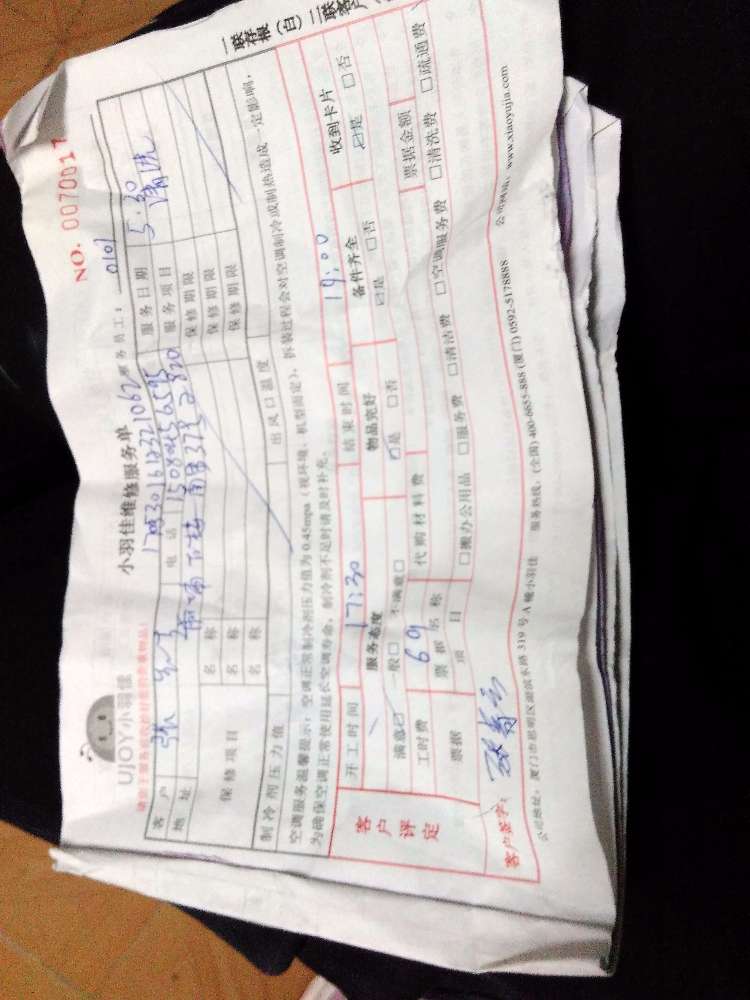 NO. 0070017
一联存根（白）二联客户
UJOY小羽佳
小羽佳维修服务单
服务员工： 0101
客户 张先生 服务日期 5.30
电话 15080456595
地址 2820 服务项目 清洗
保修项目 名称 保修期限
名称 保修期限
名称 保修期限
制冷剂压力值 出风口温度
空调服务温馨提示：空调正常制冷剂压力值为0.45mpa（视环境、机型而定），拆装过程会对空调制冷或制热造成一定影响，
为确保空调正常使用延长空调寿命，制冷剂不足时请及时补充。
客户评定
开工时间 17:30 结束时间 19:00
服务态度 物品完好 备件齐全 收到卡片
满意☑ 一般□ 不满意□ ☑是 □否 ☑是 □否 ☑是 □否
工时费 69 代购材料费
票据 票据名称 票据金额
项目 □搬办公用品 □服务费 □清洁费 □空调服务费 □清洗费 □疏通费
客户签字：
公司地址：厦门市思明区湖滨东路319号A幢小羽佳 服务热线：(全国) 400-6655-888 (厦门) 0592-5178888 公司网址：www.xiaoyujia.com